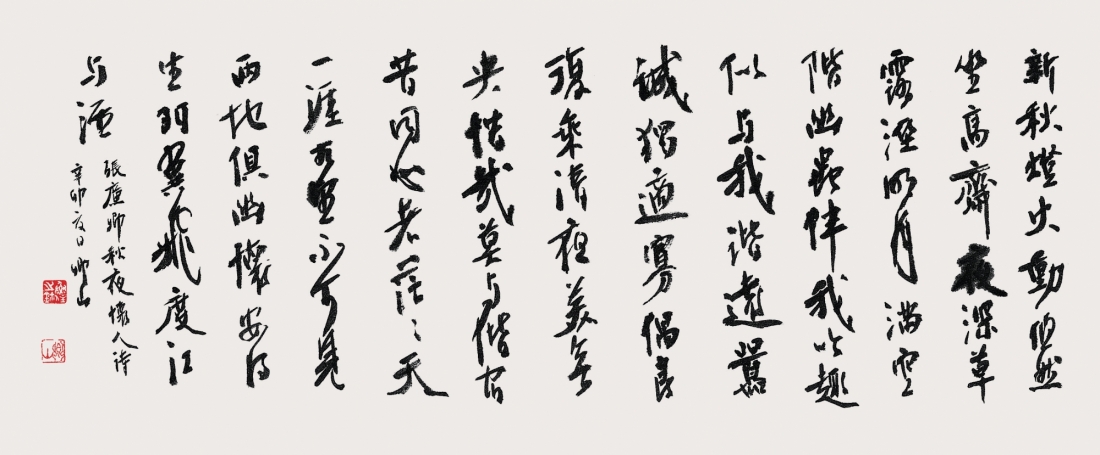 新秋燈火動翛然
坐高齋夜深草
露溼明月滿空
階幽蟲伴我吟趣
似与我諧遠囂
誠獨適寡偶良
復乖清夜美無
央惜哉莫与偕宿
昔同心者茫々天
一涯相望不可見
兩地俱幽懷安得
生羽翼飛度江
与淮
張廉卿秋夜懷人詩
辛卯夏日卿山